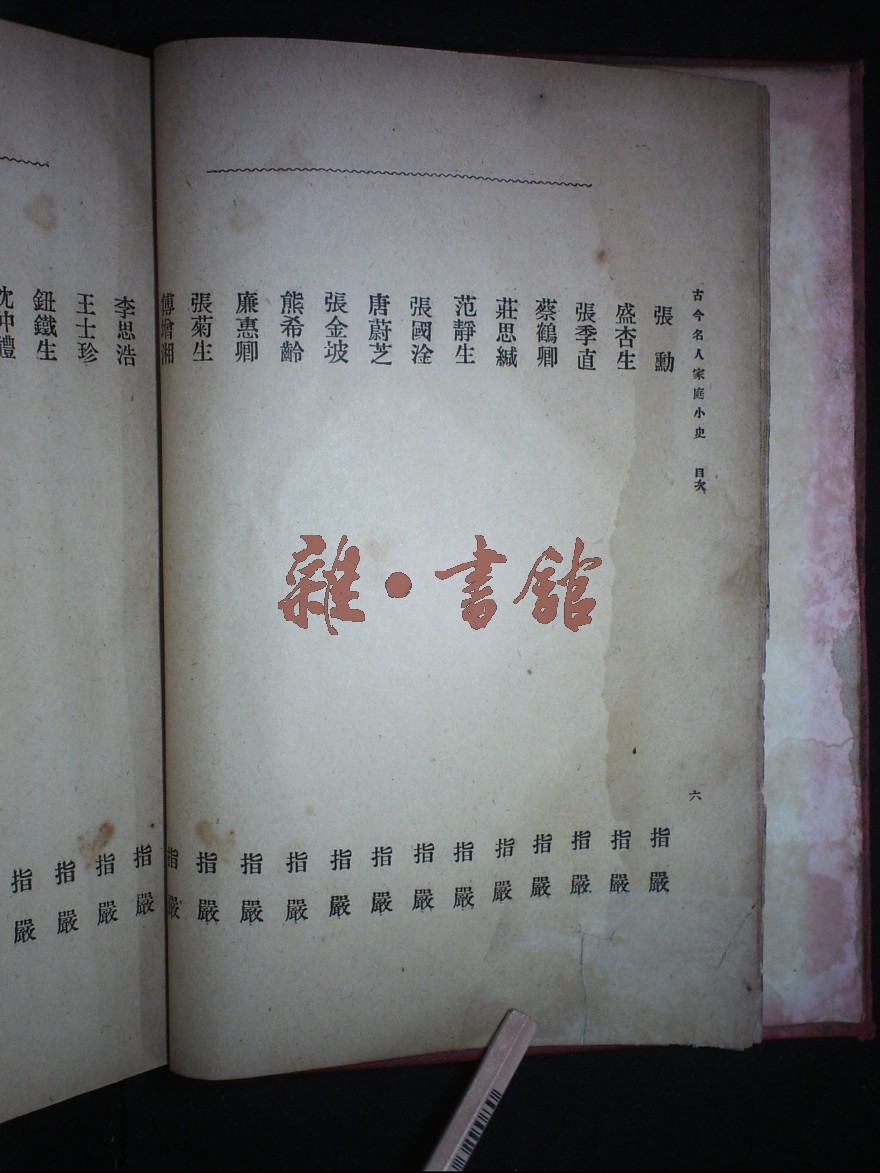 古今名人家庭小史 目次 六
張勳 指嚴
盛杏生 指嚴
張季直 指嚴
蔡鶴卿 指嚴
莊思緘 指嚴
范靜生 指嚴
張國淦 指嚴
唐蔚芝 指嚴
張金坡 指嚴
熊希齡 指嚴
廉惠卿 指嚴
張菊生 指嚴
傅增湘 指嚴
李思浩 指嚴
王士珍 指嚴
鈕鐵生 指嚴
沈仲禮 指嚴
雜·書館